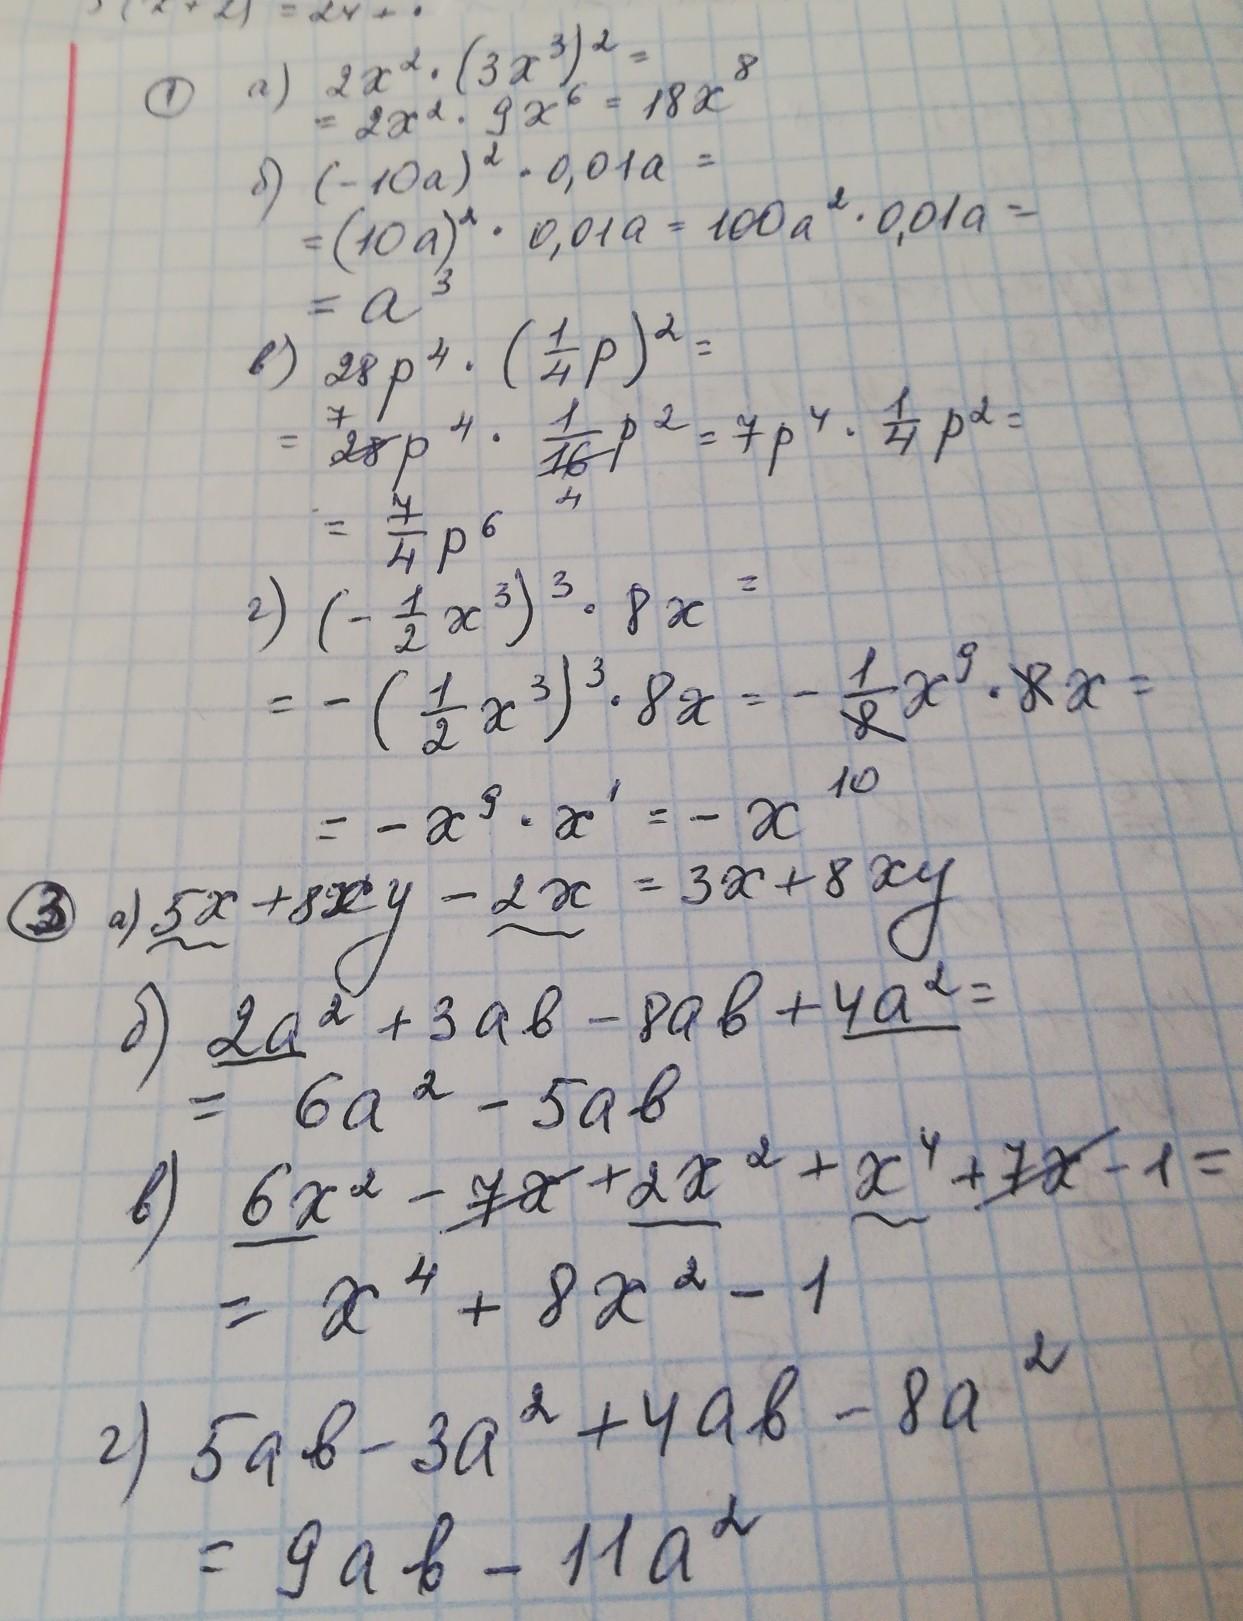 ① а) 2x² · (3x³)² =
= 2x² · 9x⁶ = 18x⁸
б) (-10a)² · 0,01a =
= (10a)² · 0,01a = 100a² · 0,01a =
= a³
в) 28p⁴ · (1/4 p)² =
= 28p⁴ · 1/16 p² = 7p⁴ · 1/4 p² =
7 4
= 7/4 p⁶
г) (-1/2 x³)³ · 8x =
= -(1/2 x³)³ · 8x = -1/8 x⁹ · 8x =
= -x⁹ · x¹ = -x¹⁰
③ а) 5x + 8xy - 2x = 3x + 8xy
б) 2a² + 3ab - 8ab + 4a² =
= 6a² - 5ab
в) 6x² - 7x + 2x² + x⁴ + 7x - 1 =
= x⁴ + 8x² - 1
г) 5ab - 3a² + 4ab - 8a²
= 9ab - 11a²